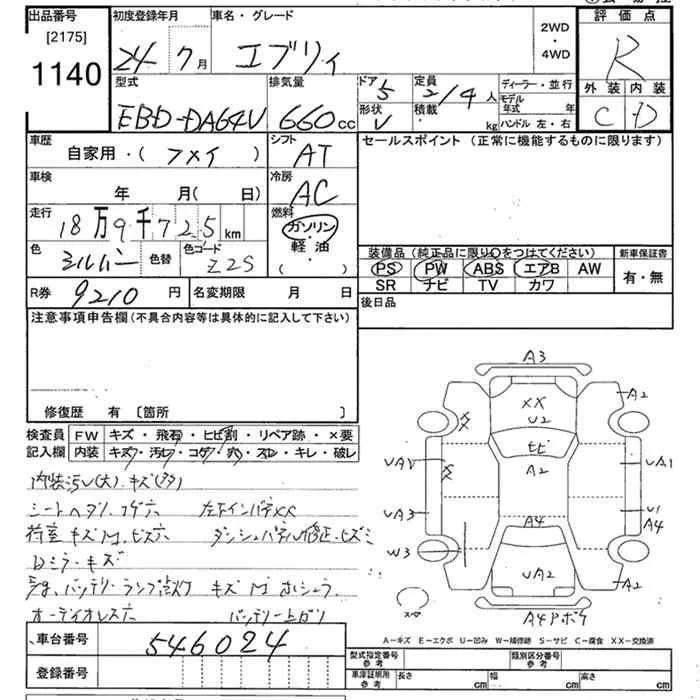 出品番号
[2175]
1140
初度登録年月
24年7月
車名・グレード
エブリィ
2WD
・
4WD
評価点
R
外装 内装
C D
型式
EBD-DA64V
排気量
660cc
ドア
5
形状
V
定員
2/4人
積載
kg
ディーラー・並行
モデル年式 年
ハンドル 左・右
車歴
自家用・( )
シフト
AT
車検
年 月(日)
冷房
AC
走行
18万9千725km
燃料
ガソリン
軽・油
( ・ )
色
色替
色コード
Z2S
R券
9210円
名変期限 月 日
セールスポイント (正常に機能するものに限ります)
装備品(純正品に限り○をつけてください)
PS PW ABS エアB AW
SR ナビ TV カワ
新車保証書
有・無
後日品
注意事項申告欄(不具合内容等は具体的に記入して下さい)
修復歴 有 [箇所 ]
検査員記入欄
FW キズ・飛石・ヒビ割・リペア跡・×要
内装 キズ・汚レ・コゲ・穴・スレ・キレ・破レ
内装汚レ(大)・キズ
荷室 キズ
ミラーキズ
バッテリーランプ点灯 キズ
オーディオレス穴
バッテリー上ガリ
A3
A2
XX
U2
ヒビ
A2
UA1
UA1
UA3
U1
A4
A4
W3
UA2
A2
A4
A-キズ E-エクボ U-凹み W-補修跡 S-サビ C-腐食 XX-交換済
車台番号
546024
登録番号
型式指定番号
参考
類別区分番号
参考
車庫証明用
参考
長さ cm
幅 cm
高さ cm